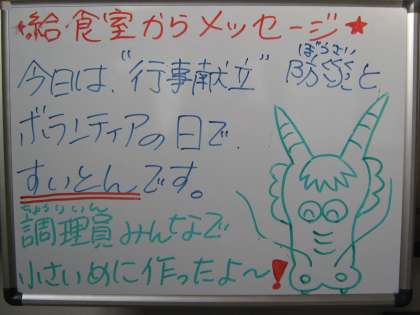 ★給食室からメッセージ★
今日は、“行事献立” 防災と
ぼうさい
ボランティアの日で、
すいとんです。
ちょうりいん
調理員みんなで
小さいめに作ったよ〜!